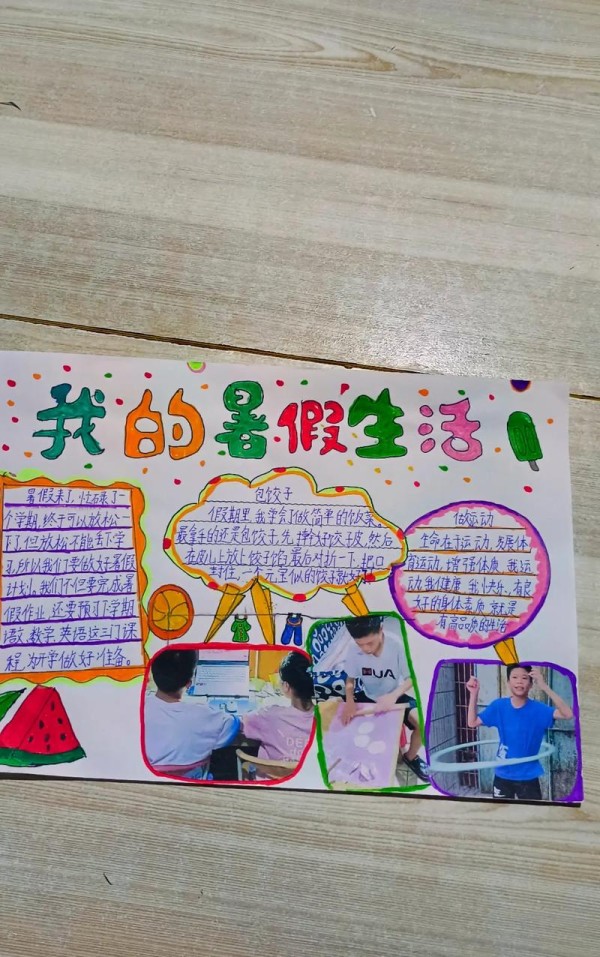 我的暑假生活
暑假来了,忙碌了一
个学期,终于可以放松一
下了但放松不能丢下学
习,所以我们要做好暑假
计划。我们不但要完成暑
假作业 还要预习下学期
语文 数学 英语这三门课
程,为开学做好准备。
包饺子
假期里,我学会了做简单的饭菜。
最拿手的还是包饺子,先擀好饺子皮,然后
在皮儿上放上饺子馅,最后对折一下,把口
封住,一个元宝似的饺子就好
做运动
生命在于运动,发展体
育运动,增强体质 我运
动,我健康 我快乐。有良
好的身体素质 就是
有高品质的生活
UA